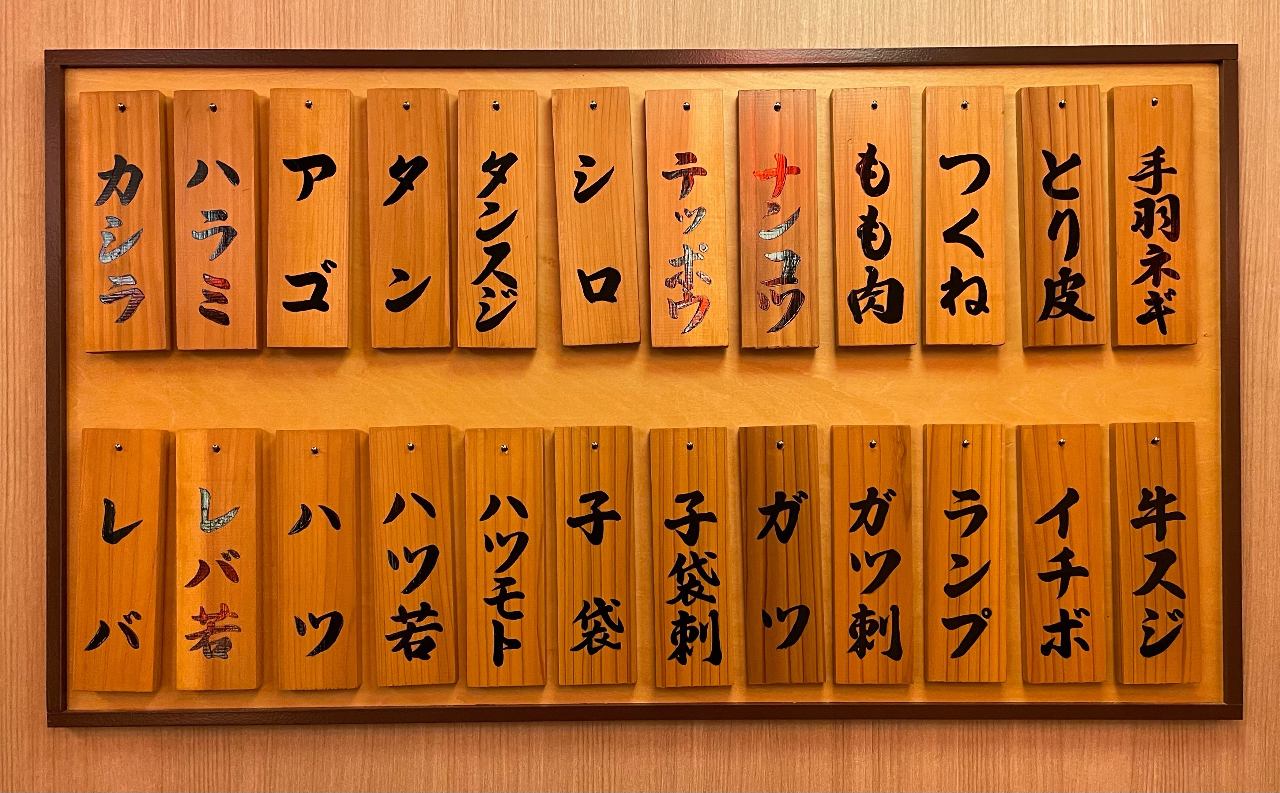 カシラ
ハラミ
アゴ
タン
タンスジ
シロ
テッポウ
ナンコツ
もも肉
つくね
とり皮
手羽ネギ
レバ
レバ若
ハツ
ハツ若
ハツモト
子袋
子袋刺
ガツ
ガツ刺
ランプ
イチボ
牛スジ